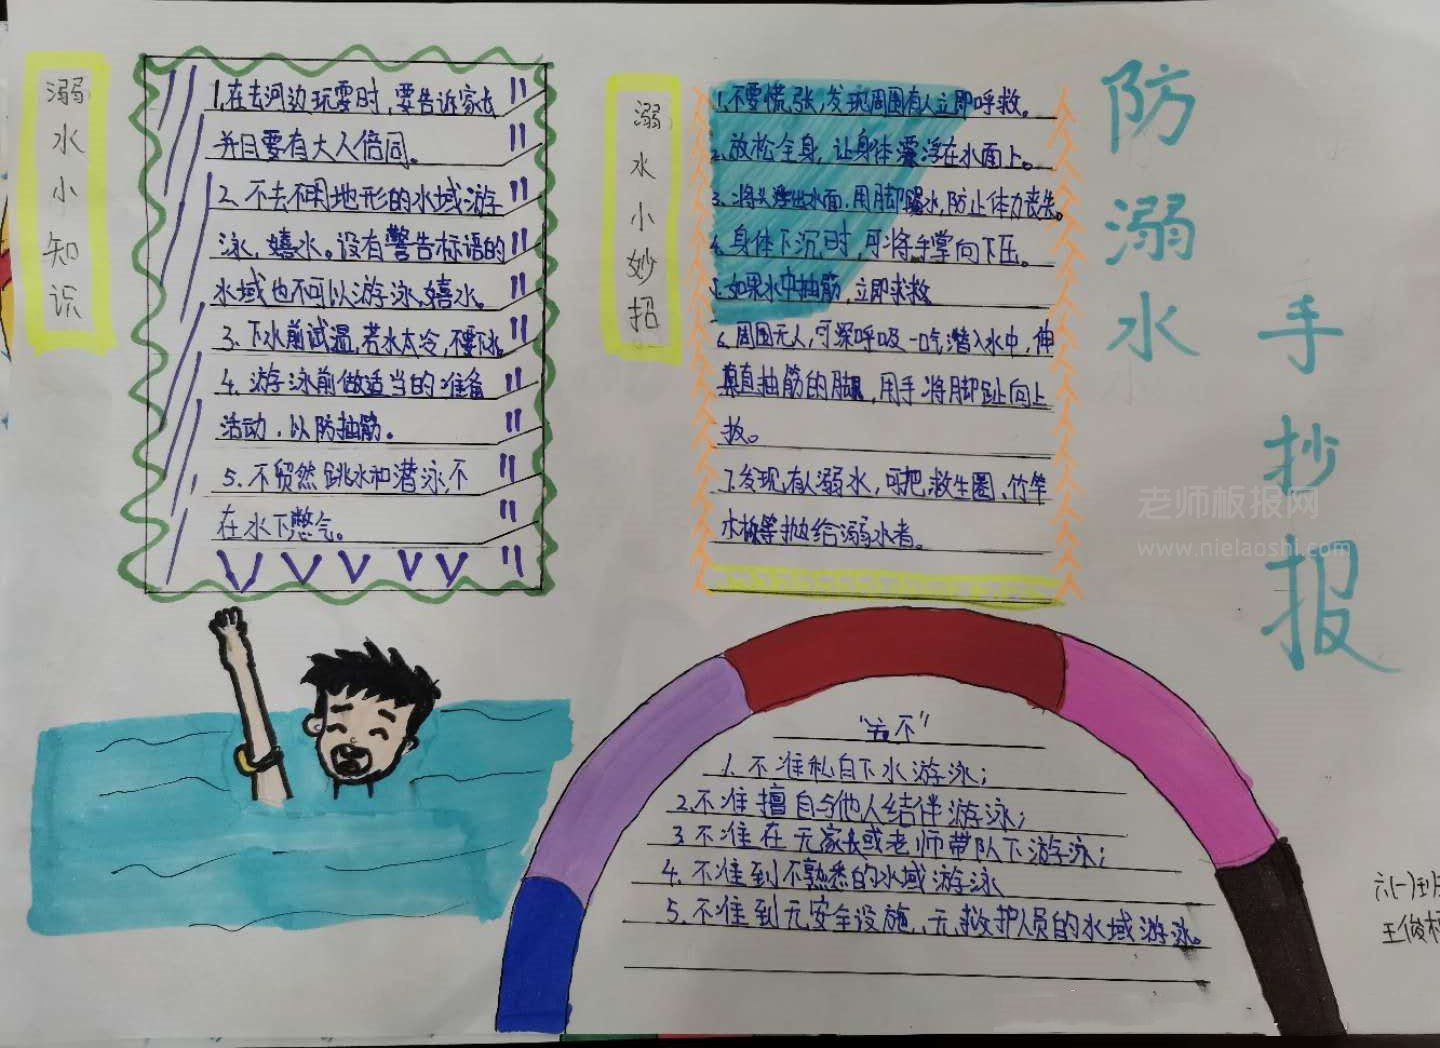 溺水小知识
1.在去河边玩耍时,要告诉家长
并且要有大人倍同。
2.不去不明地形的水域游
泳,嬉水。设有警告标语的
水域也不可以游泳、嬉水。
3.下水前试温,若水太冷,不要下水。
4.游泳前做适当的准备
活动,以防抽筋。
5.不贸然跳水和潜泳,不
在水下憋气。
溺水小妙招
1.不要慌张,发现周围有人立即呼救。
2.放松全身,让身体漂浮在水面上。
3.将头浮出水面,用脚踢水,防止体力丧失。
4.身体下沉时,可将手掌向下压。
5.如果水中抽筋,立即求救
6.周围无人,可深呼吸一口气潜入水中,伸
直抽筋的腿,用手将脚趾向上
扳。
7.发现有人溺水,可把救生圈、竹竿
木板等抛给溺水者。
防溺水
手抄报
老师板报网
www.nielaoshi.com
不"
1.不准私自下水游泳;
2.不准擅自与他人结伴游泳;
3.不准在无家长或老师带队下游泳;
4.不准到不熟悉的水域游泳
5.不准到无安全设施、无救护人员的水域游泳。
六(一)班
王俊